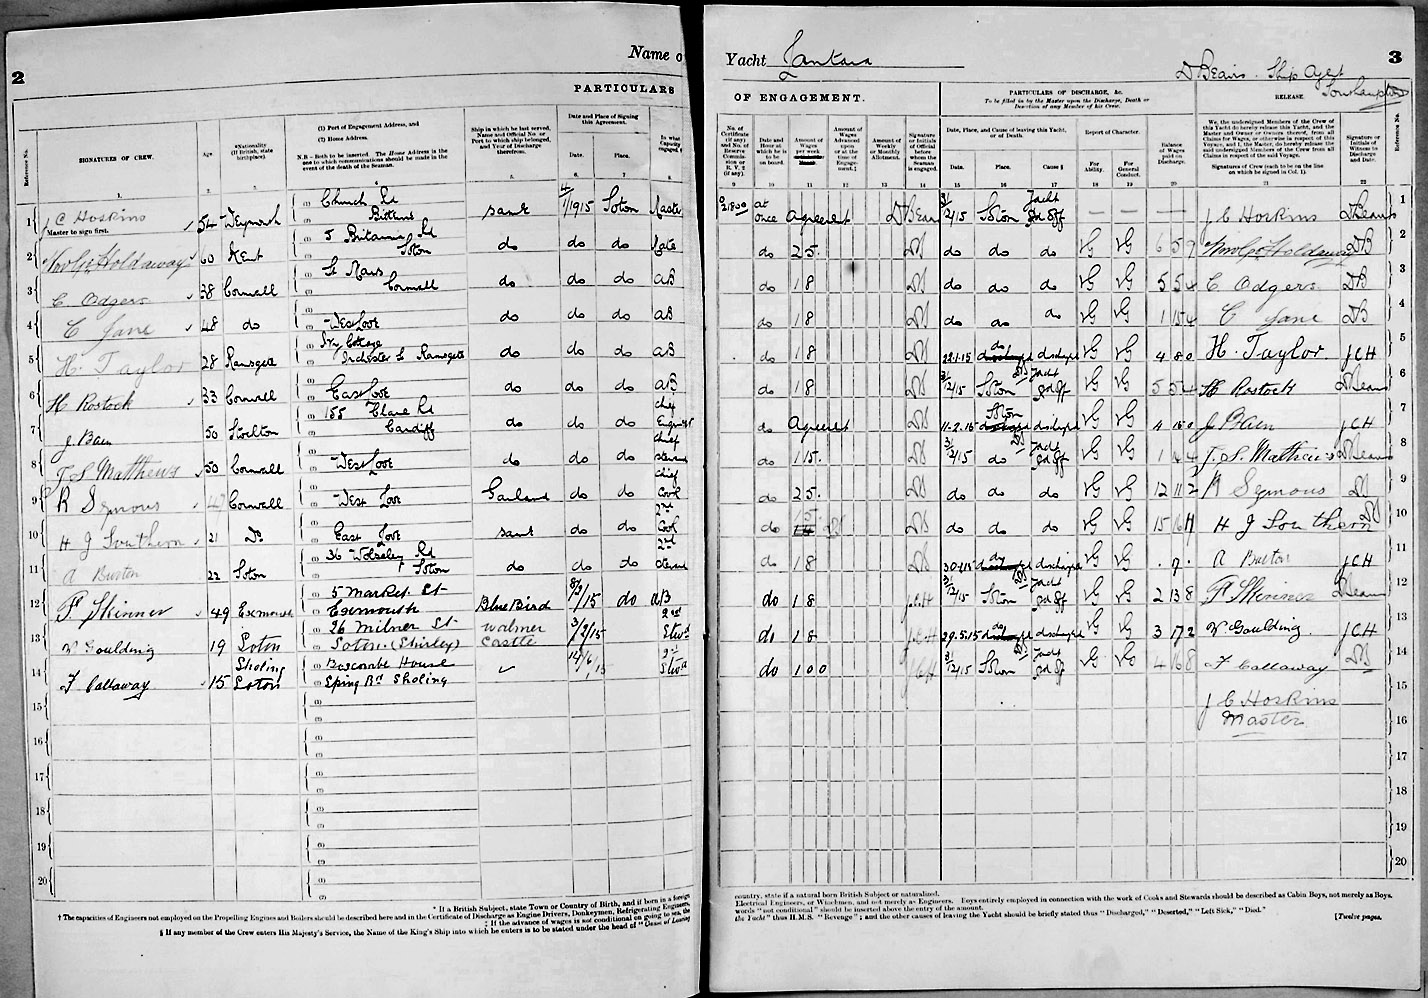 2
Name o
PARTICULARS
Reference No.
SIGNATURES OF CREW.
Age
*Nationality
(If British, state
birthplace).
(1) Port of Engagement Address, and
(2) Home Address.
N.B.—Both to be inserted. The Home Address is the
one to which communications should be made in the
event of the death of the Seaman.
Ship in which he last served,
Name and Official No. or
Port to which ship belonged,
and Year of Discharge
therefrom.
Date and Place of Signing
this Agreement.
Date.
Place.
In what
Capacity
engaged.
1.
2.
3.
4
5.
6.
7
8.
1 J C Hoskins 54 Weymouth Church Rd same 4/1/1915 Soton Maste
Master to sign first.
Bitterne
2 Wm Go Holdaway 60 Kent 5 Britannia Rd do do do Mate
Soton
3 C Odgers 38 Cornwall St Maws do do do AB
Cornwall
4 C Jane 48 do West Looe do do do AB
5 H. Taylor 28 Ramsgate Ivy Cottage do do do AB
Ramsgate
6 H Rostock 33 Cornwall East Looe do do do AB
7 J Bain 50 155 Clare Rd do do do Chief
Cardiff Engineer
8 T. S Matthews 50 Cornwall West Looe do do do Chief
9 R Symons 47 Cornwall West Looe Garland do do Chief
Cook
10 H J Southern 21 Do East Looe same do do 2nd
Cook
11 A Burton 22 Soton 36 Wolseley Rd do do do 2nd
Soton
12 F. Skinner 49 Exmouth 5 Market St Blue Bird 8/2/15 do AB
Exmouth
13 V Goulding 19 Soton 26 Milner St Walmer 3/2/15 2nd
Soton. (Shirley) Castle Stwd
14 F Callaway 15 Sholing Boscombe House 14/6/15 2nd
Soton Spring Rd Sholing Stwd
15
16
17
18
19
20
* If a British Subject, state Town or Country of Birth, and if born in a foreign
† The capacities of Engineers not employed on the Propelling Engines and Boilers should be described here and in the Certificate of Discharge as Engine Drivers, Donkeymen, Refrigerating Engineers
‡ If the advance of wages is not conditional on going to sea, the
§ If any member of the Crew enters His Majesty's Service, the Name of the King's Ship into which he enters is to be stated under the head of "Cause of Leaving
Yacht Zantara
3
D Beavis. Ship Agent
Southampton
OF ENGAGEMENT.
PARTICULARS OF DISCHARGE, &c.
To be filled in by the Master upon the Discharge, Death or
Desertion of any Member of his Crew.
RELEASE.
No. of
Certificate
(if any)
and No. of
Reserve
Commis-
sion or
R. V. 2
(if any).
Date and
Hour at
which he is
to be
on board.
Amount of
Wages
per week
Amount of
Wages
Advanced
upon
at this
time of
Engage-
ment.‡
Amount of
Weekly
or Monthly
Allotment.
Signature
or Initials
of Official
before
whom the
Seaman
is engaged.
Date, Place, and Cause of leaving this Yacht,
or of Death.
Date.
Place.
Cause §
Report of Character.
For
Ability.
For
General
Conduct.
Balance
of Wages
paid on
Discharge.
We, the undersigned Members of the Crew
of this Yacht do hereby release this Yacht, and the
Master and Owner or Owners thereof, from all
Claims for Wages or otherwise in respect of this
Voyage, and I, the Master, do hereby release the
said undersigned Members of the Crew from all
Claims in respect of the said Voyage.
Signatures of Crew (each to be on the line
on which he signed in Col. 1).
Signature or
Initials of
Witness to
Discharge
and Date.
Reference No.
9
10
11
12
13
14
15
16
17
18
19
20
21
22
at once Agreement 3/12/15 Soton Yacht pd off — — — J C Hoskins D Beavis 1
do 25. DB do do do VG VG 6 5 9 Wm Go Holdaway DB 2
do 18 DB do do do VG VG 5 5 4 C Odgers DB 3
do 18 DB do do do VG VG 1 15 4 C Jane DB 4
do 18 DB 22.1.15 do discharged VG VG 4 8 0 H. Taylor JCH 5
do 18 DB 3/12/15 Soton Yacht pd off VG VG 5 5 4 H Rostock D Beavis 6
do Agreement DB 11.2.15 Soton discharged VG VG 4 15 0 J Bain JCH 7
do 15. DB 3/12/15 do Yacht pd off VG VG 1 4 4 T. S. Matthews D Beavis 8
do 25. DB do do do VG VG 12 11 2 R Symons DB 9
do 15 DB do do do VG VG 15 16 4 H J Southern DB 10
do 18 DB 30.1.15 do discharged VG VG . 7 . A Burton JCH 11
do 18 J.C.H 3/12/15 Soton Yacht pd off VG VG 2 13 8 F Skinner D Beavis 12
do 18 J.C.H 29.5.15 do discharged VG VG 3 17 2 V Goulding. JCH 13
do 10 0 J C H 3/12/15 Soton Yacht pd off VG VG 4 16 8 F Callaway DB 14
J C Hoskins 15
Master 16
17
18
19
20
country, state if a natural born British Subject or naturalized.
Electrical Engineers, or Winchmen, and not merely as Engineers. Boys entirely employed in connection with the work of Cooks and Stewards should be described as Cabin Boys, not merely as Boys.
words "not conditional" should be inserted above the entry of the amount.
the Yacht" thus H.M.S. "Revenge"; and the other causes of leaving the Yacht should be briefly stated thus "Discharged," "Deserted," "Left Sick," "Died."
[Twelve pages.